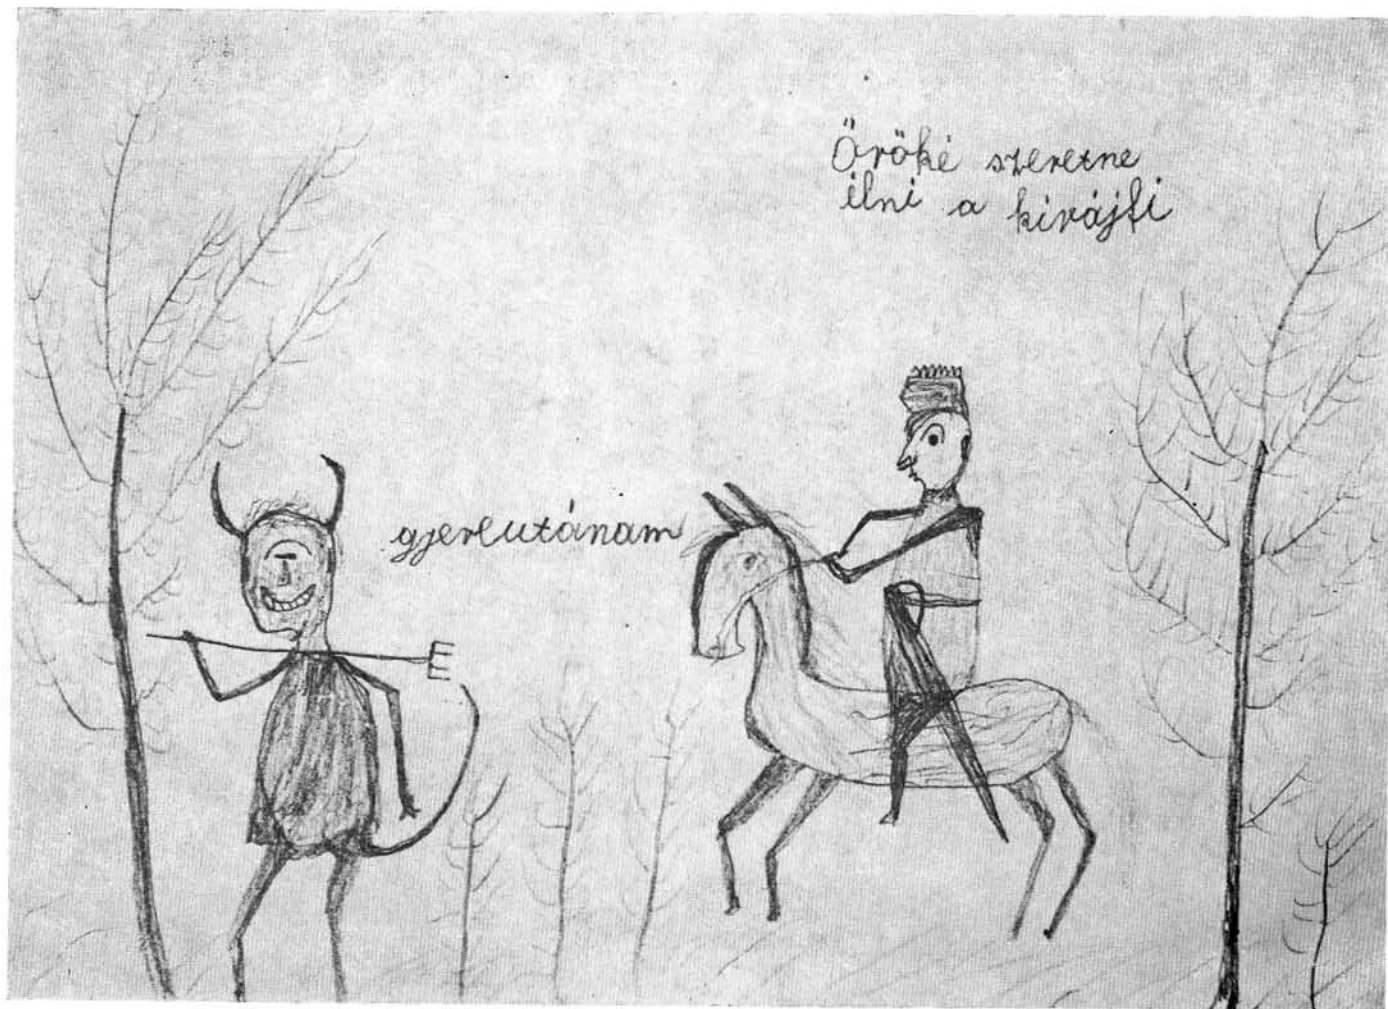 Öröké szeretne
ilni a kirájfi
gjereutánam